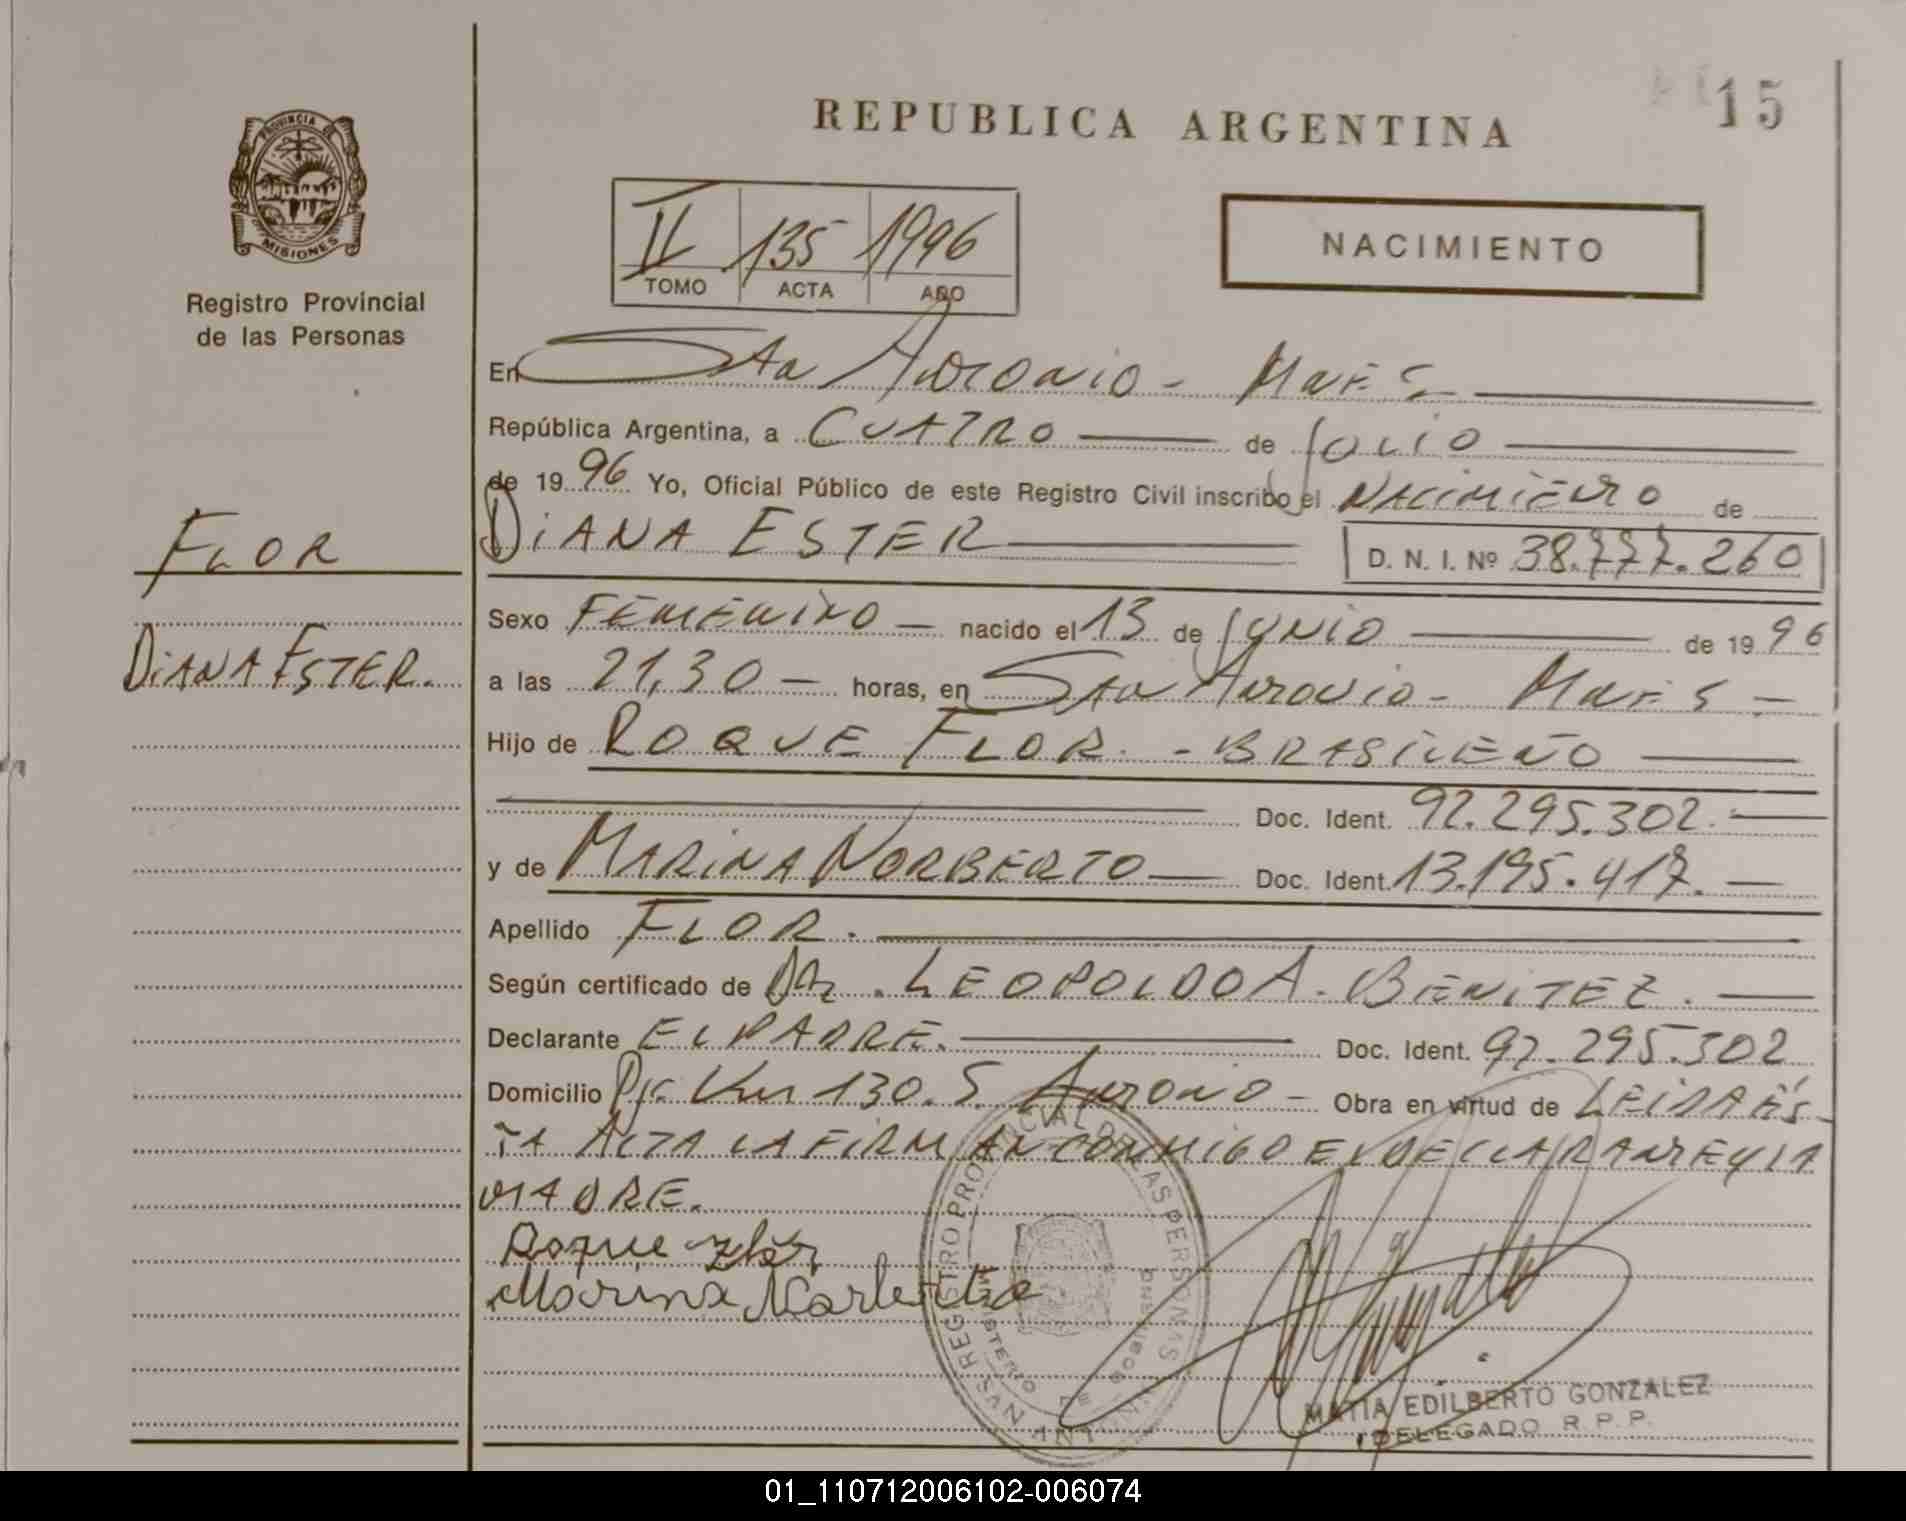 REPUBLICA ARGENTINA
15
PROVINCIA DE
MISIONES
Registro Provincial
de las Personas
II 135 1996
TOMO ACTA AÑO
NACIMIENTO
En Sta Antonio - Mnes
República Argentina, a CUATRO de Julio
de 1996 Yo, Oficial Público de este Registro Civil inscribo el NACIMIENTO de
DIANA ESTER D. N. I. Nº 38.777.260
FLOR
DIANA ESTER.
Sexo FEMENINO - nacido el 13 de Junio de 1996
a las 21,30 - horas, en Sta Antonio - Mnes -
Hijo de ROQUE FLOR. - BRASILEÑO
Doc. Ident. 92.295.302.
y de MARINA NORBERTO Doc. Ident. 13.195.417.
Apellido FLOR.
Según certificado de Dr. LEOPOLDO A. BENITEZ.
Declarante EL PADRE. Doc. Ident. 92.295.302
Domicilio Pje. Km 130. S. Antonio - Obra en virtud de LEIDA ÉS
TA ACTA LA FIRMAN CONMIGO EL DECLARANTE Y LA
MADRE.
Roque Flor
Marina Norberto
REGISTRO PROVINCIAL DE LAS PERSONAS
MINISTERIO DE GOBIERNO
SAN ANTONIO
MATIA EDILBERTO GONZALEZ
DELEGADO R. P. P.
01_110712006102-006074